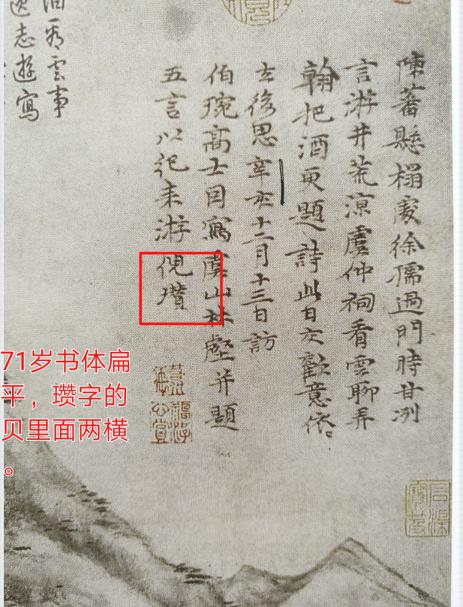 陳蕃懸榻處徐孺過門時甘冽
言游井荒涼虞仲祠看雲聊弄
翰把酒更題詩此日交歡意依〻
去後思辛亥十二月十三日訪
伯琬高士因寫虞山林壑并題
五言以紀來游倪瓚
雲事
志遊寫
71岁书体扁
平，瓒字的
贝里面两横
。